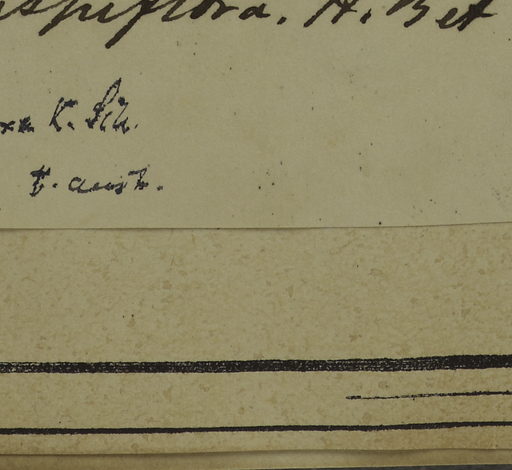 uspiflora. H. Bet
xa K. Sch.
t. austr.